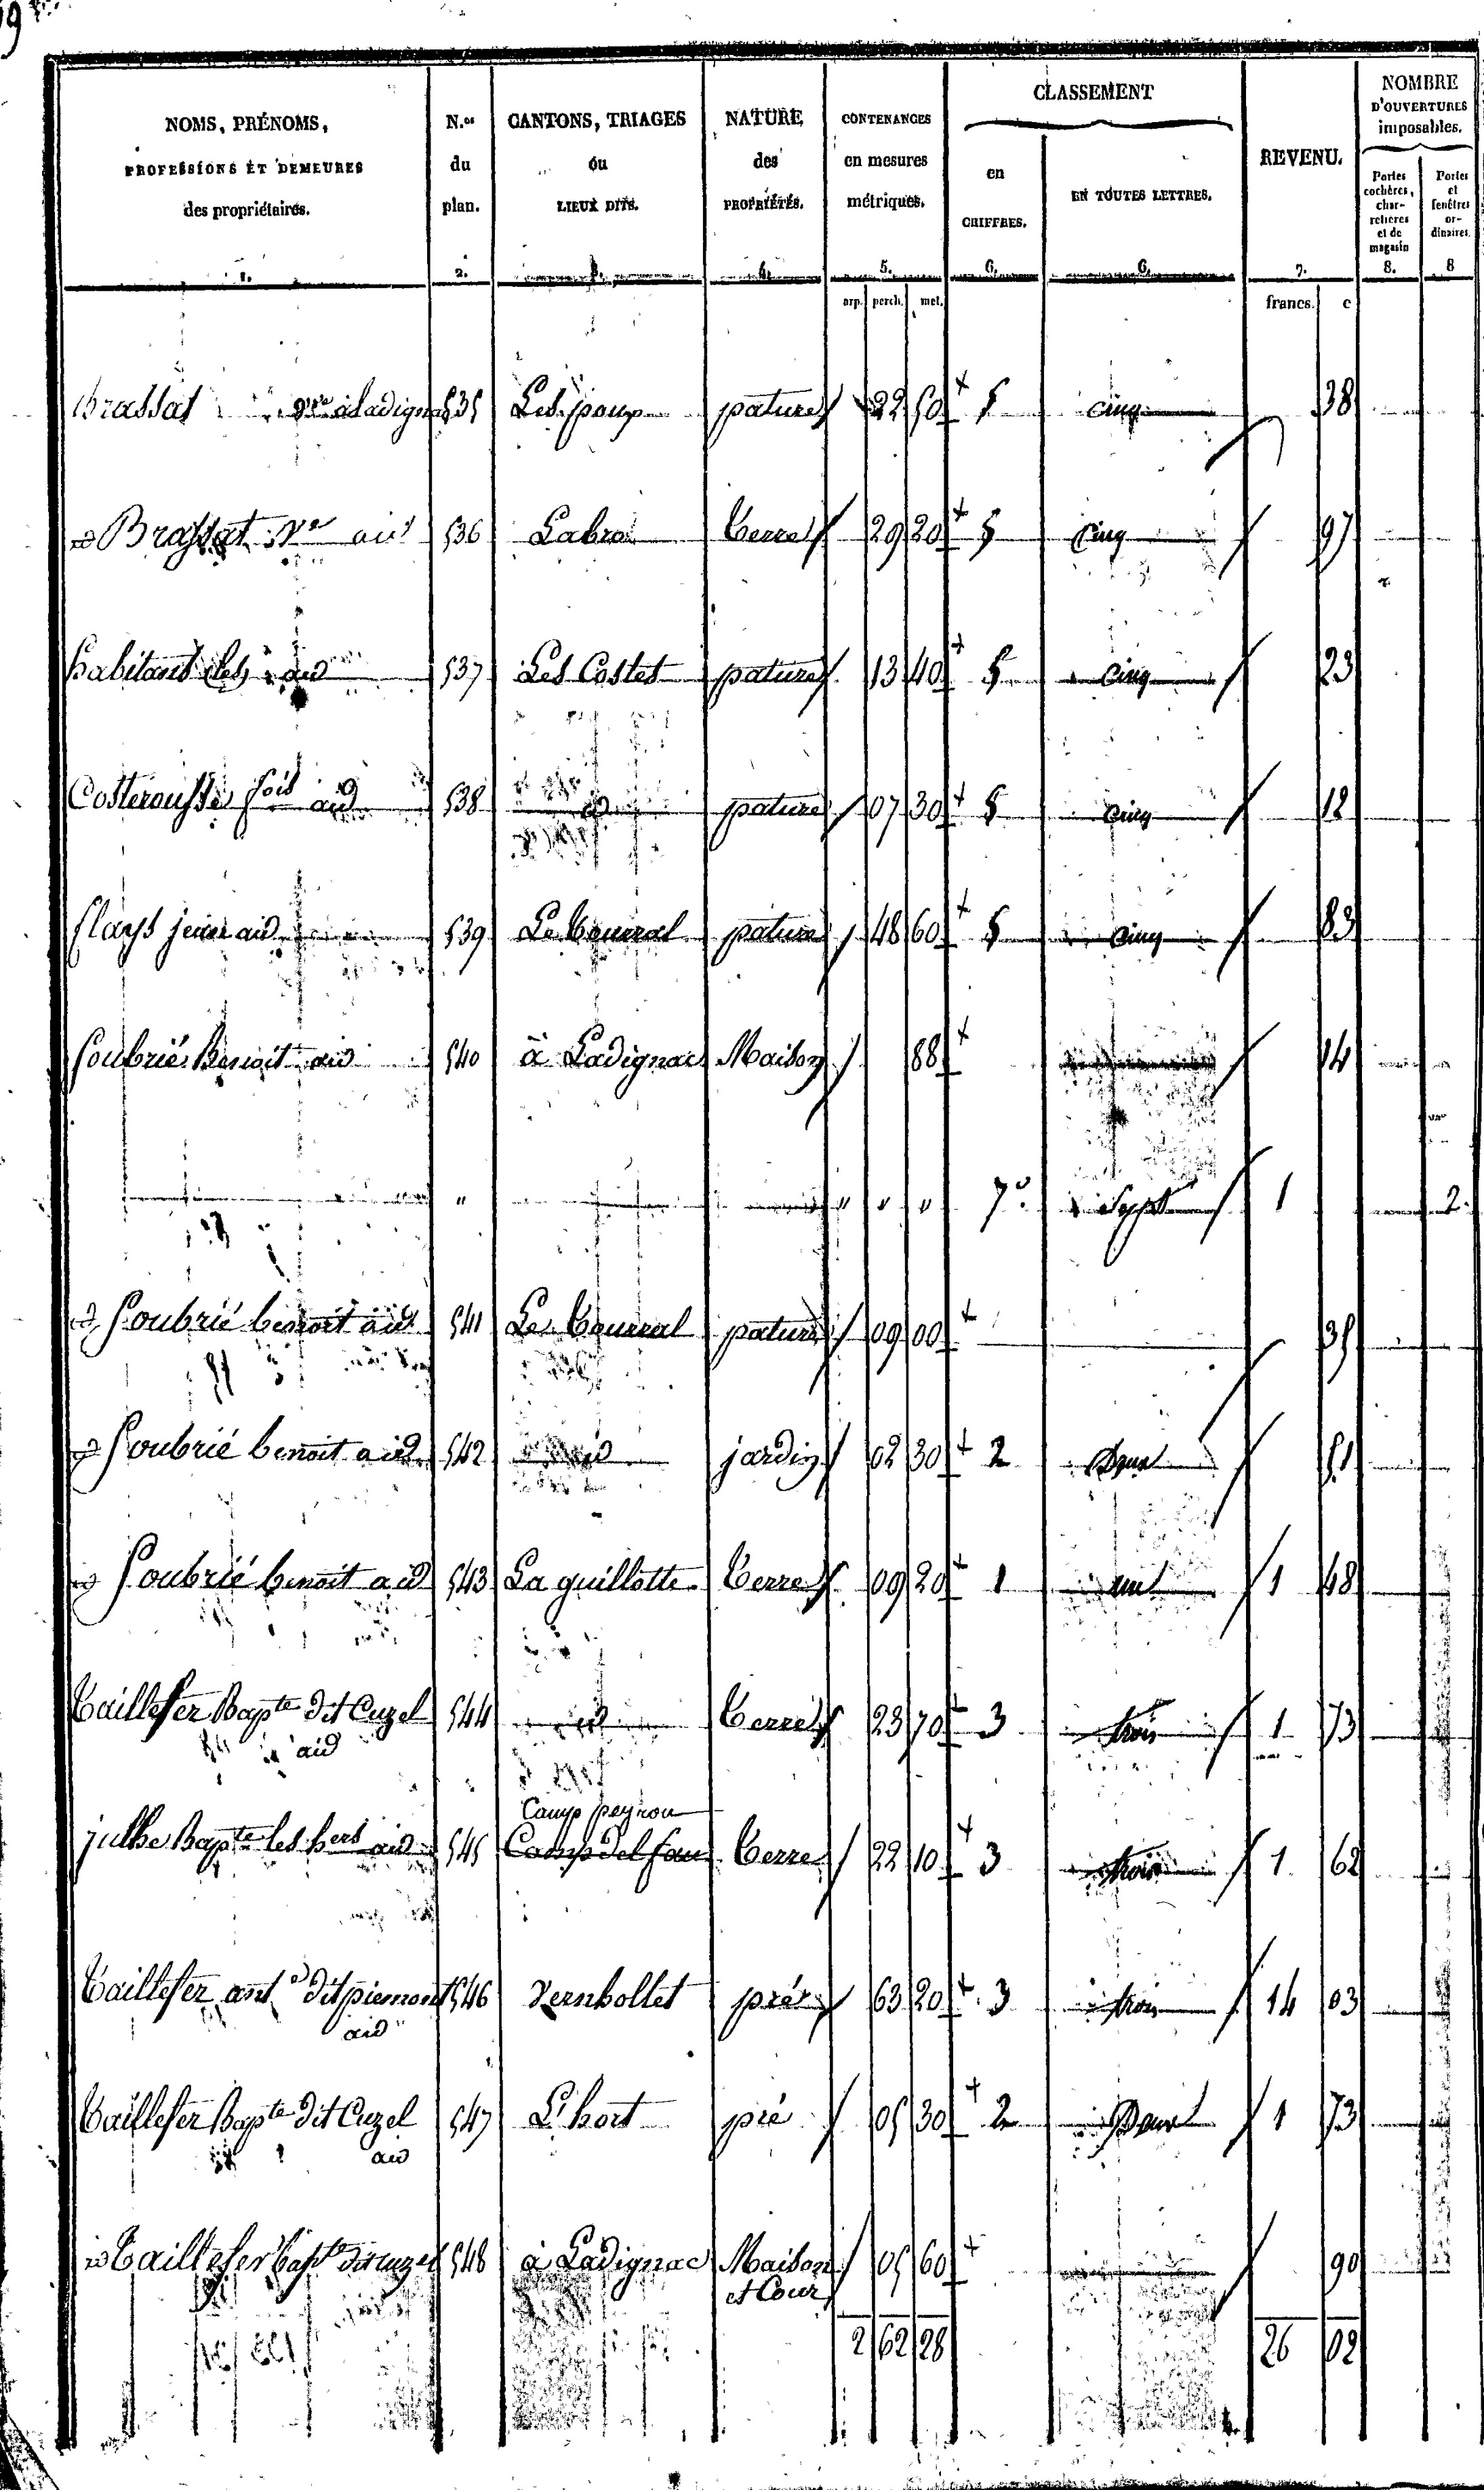 NOMS, PRÉNOMS,
PROFESSIONS ET DEMEURES
des propriétaires.
1.
N.os
du
plan.
2.
CANTONS, TRIAGES
ou
LIEUX DITS.
3.
NATURE
des
PROPRIÉTÉS.
4.
CONTENANCES
en mesures
métriques.
5.
CLASSEMENT
en
CHIFFRES.
6.
EN TOUTES LETTRES.
6.
REVENU.
7.
NOMBRE
D'OUVERTURES
imposables.
Portes
cochères,
char-
retières
et de
magasin
8.
Portes
et
fenêtres
or-
dinaires.
8
arp. perch. met. francs. c
Brassat ve à Ladignac 535 Les pouy pature 22 50 5 cinq 38
id Brassat Ve aid 536 Labro Terre 29 20 5 cinq 97
habitants (les) aid 537 Les Costes pature 13 40 5 cinq 23
Costerousse fois aid 538 id pature 07 30 5 cinq 12
flays jeune aid 539 Le Courral pature 48 60 5 cinq 83
Soubrié Benoit aid 540 à Ladignac Maison 88 14
" " " " 7e Sept 1 2
id Soubrié benoit aid 541 Le Courral pature 09 00 35
id Soubrié benoit aid 542 id jardin 02 30 2 Deux 51
id Soubrié benoit aid 543 La guillotte Terre 09 20 1 un 1 48
Taillefer Bapte dit Cuzel 544 id Terre 23 70 3 trois 1 73
aid
Camp peyrou
julhe Bapte les hers aid 545 Camp del fau Terre 22 10 3 trois 1 62
Taillefer ante dit piemont 546 Vernhollet pré 63 20 3 trois 14 03
aid
Taillefer Bapte dit Cuzel 547 L'hort pré 05 30 2 Deux 1 73
aid
id Taillefer bapte dit cuzel 548 à Ladignac Maison 05 60 90
et Cour
2 62 28 26 02